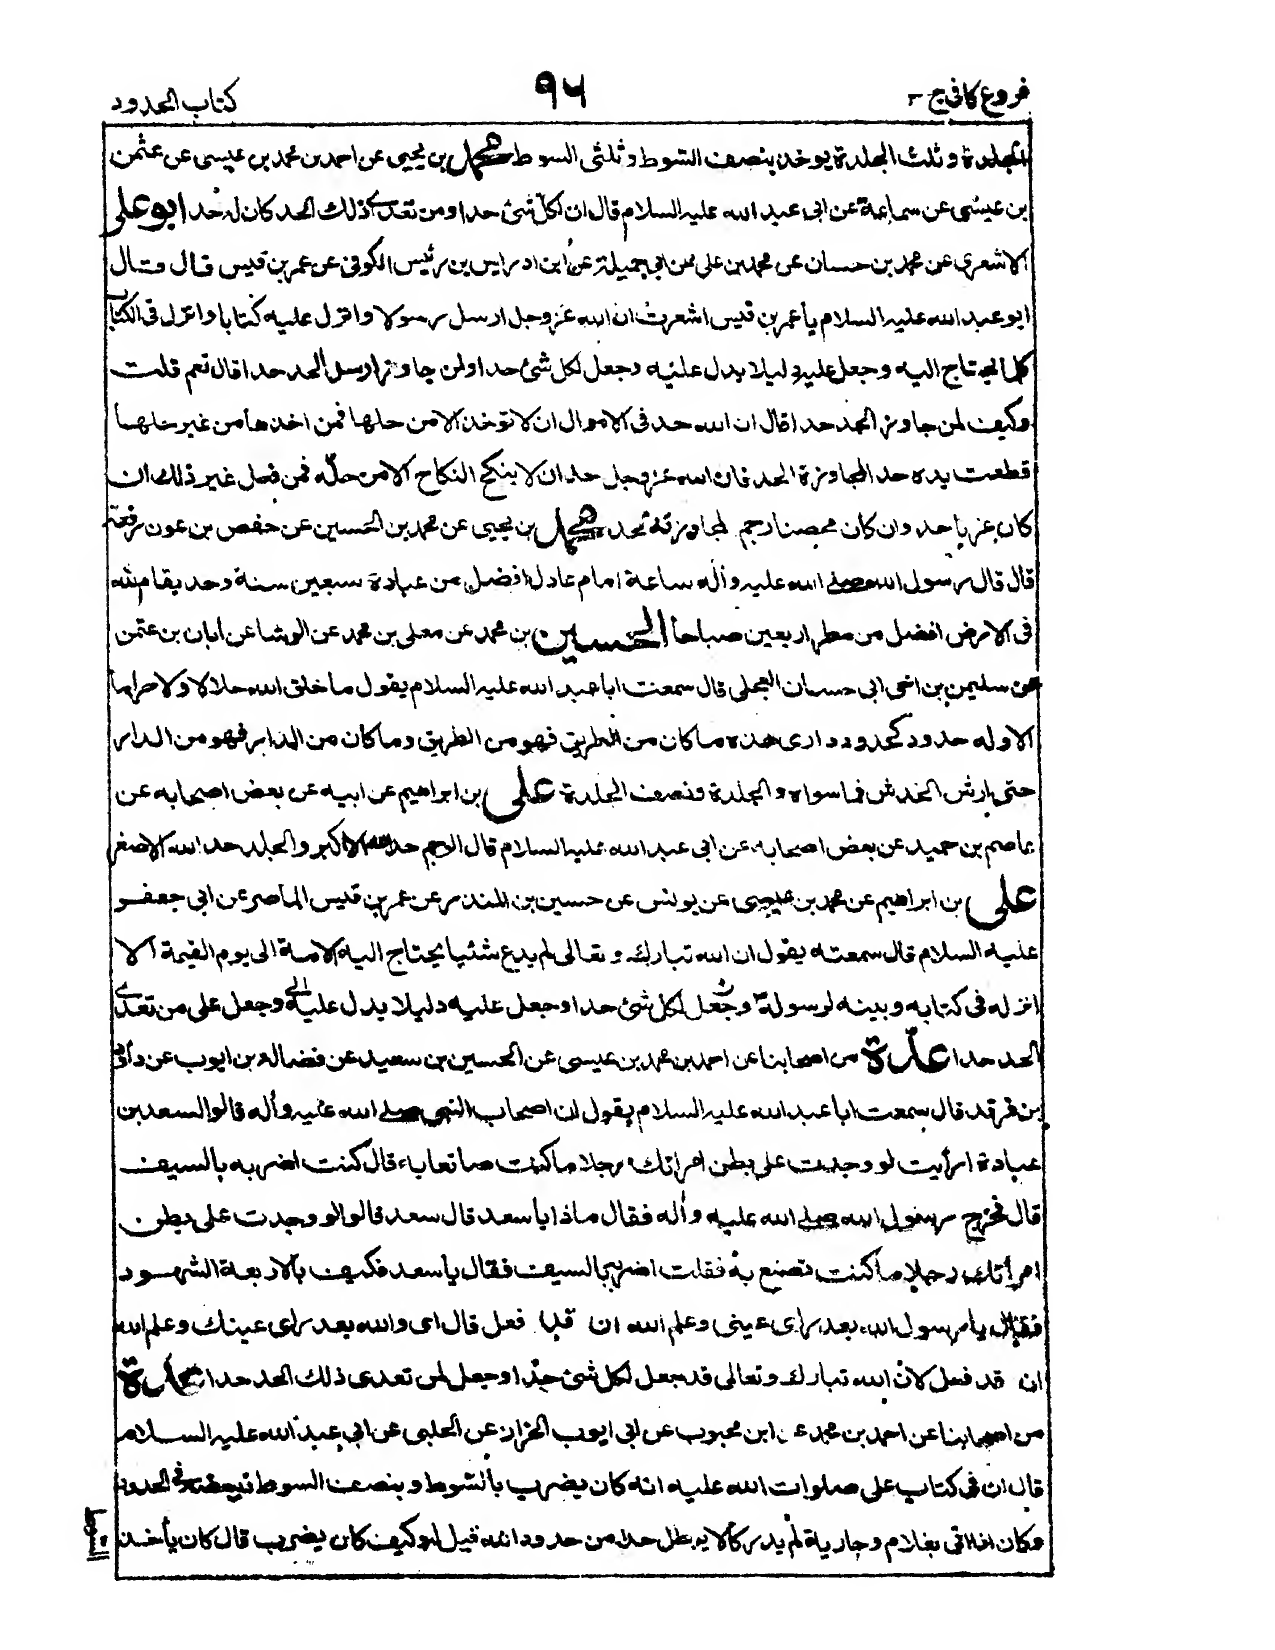 فروع كافى ج ٣
٩٦
كتاب الحدود
الجلدة و ثلث الجلدة يوخذ بنصف السوط و ثلثى السوط محمد بن يحيى عن احمد بن محمد بن عيسى عن عثمن
بن عيسى عن سماعة عن ابى عبد الله عليه السلام قال ان لكل شئ حدا ومن تعدى ذلك الحد كان له حد ابو على
الاشعرى عن محمد بن حسان عن محمد بن على عن ابى جميلة عن ابن ادريس بن رئيس الكوفى عن عمر بن قيس قال وقال
ابو عبد الله عليه السلام يا عمر بن قيس اشعرت ان الله عز وجل ارسل رسولا وانزل عليه كتابا وانزل فى الكتاب
كلما يحتاج اليه وجعل عليه دليلا يدل عليه وجعل لكل شئ حدا ولمن جاوز ارسل الحد حدا قال نعم قلت
وكيف لمن جاوز الحد حدا قال ان الله حد فى الاموال ان لا توخذ الا من حلها فمن اخذها من غير حلها
قطعت يده حد المجاوزة الحد فان الله عز وجل حد ان لا ينكح النكاح الا من حله فمن فعل غير ذلك ان
كان عزبا حد وان كان محصنا رجم لمجاوزته تحد محمد بن يحيى عن محمد بن الحسين عن حفص بن عون رفعه
قال قال رسول الله صلى الله عليه وآله ساعة امام عادل افضل من عبادة سبعين سنة وحد يقام لله
فى الارض افضل من مطر اربعين صباحا الحسين بن محمد عن معلى بن محمد عن الوشا عن ابان بن عثمن
عن سليمن بن اخى ابى حسان العجلى قال سمعت ابا عبد الله عليه السلام يقول ما خلق الله حلالا ولا حراما
الا وله حدود كحدود دارى هذه ما كان من الطريق فهو من الطريق وما كان من الدار فهو من الدار
حتى ارش الخدش فما سواه والجلدة ونصف الجلدة على بن ابراهيم عن ابيه عن بعض اصحابه عن
عاصم بن حميد عن بعض اصحابه عن ابى عبد الله عليه السلام قال الرجم حد الله الاكبر والجلد حد الله الاصغر
على بن ابراهيم عن محمد بن عيسى عن يونس عن حسين بن المنذر عن عمر بن قيس الماصر عن ابى جعفر
عليه السلام قال سمعته يقول ان الله تبارك و تعالى لم يدع شئيا يحتاج اليه الامة الى يوم القيمة الا
انزله فى كتابه وبينه لرسوله وجعل لكل شئ حدا وجعل عليه دليلا يدل عليه وجعل على من تعدى
الحد حدا عدة من اصحابنا عن احمد بن محمد بن عيسى عن الحسين بن سعيد عن فضالة بن ايوب عن داود
بن فرقد قال سمعت ابا عبد الله عليه السلام يقول ان اصحاب النبى صلى الله عليه وآله قالوا لسعد بن
عبادة ارأيت لو وجدت على بطن امراتك رجلا ما كنت صانعا به قال كنت اضربه بالسيف
قال فخرج رسول الله صلى الله عليه وآله فقال ماذا يا سعد قال سعد قالوا لو وجدت على بطن
امرأتك رجلا ما كنت تصنع به فقلت اضربه بالسيف فقال يا سعد فكيف بالاربعة الشهود
فقال يا رسول الله بعد راى عينى وعلم الله ان فعل قال اى والله بعد راى عينك وعلم الله
ان قد فعل لان الله تبارك و تعالى قد جعل لكل شئ حدا وجعل لمن تعدى ذلك الحد حدا عدة
من اصحابنا عن احمد بن محمد عن ابن محبوب عن ابى ايوب الخزاز عن الحلبى عن ابى عبد الله عليه السلام
قال ان فى كتاب على صلوات الله عليه انه كان يضرب بالسوط و بنصف السوط وببعضه فى الحدود
وكان اذا اتى بغلام وجارية لم يدركا لا يبطل حدا من حدود الله قيل له وكيف كان يضرب قال كان يأخذ